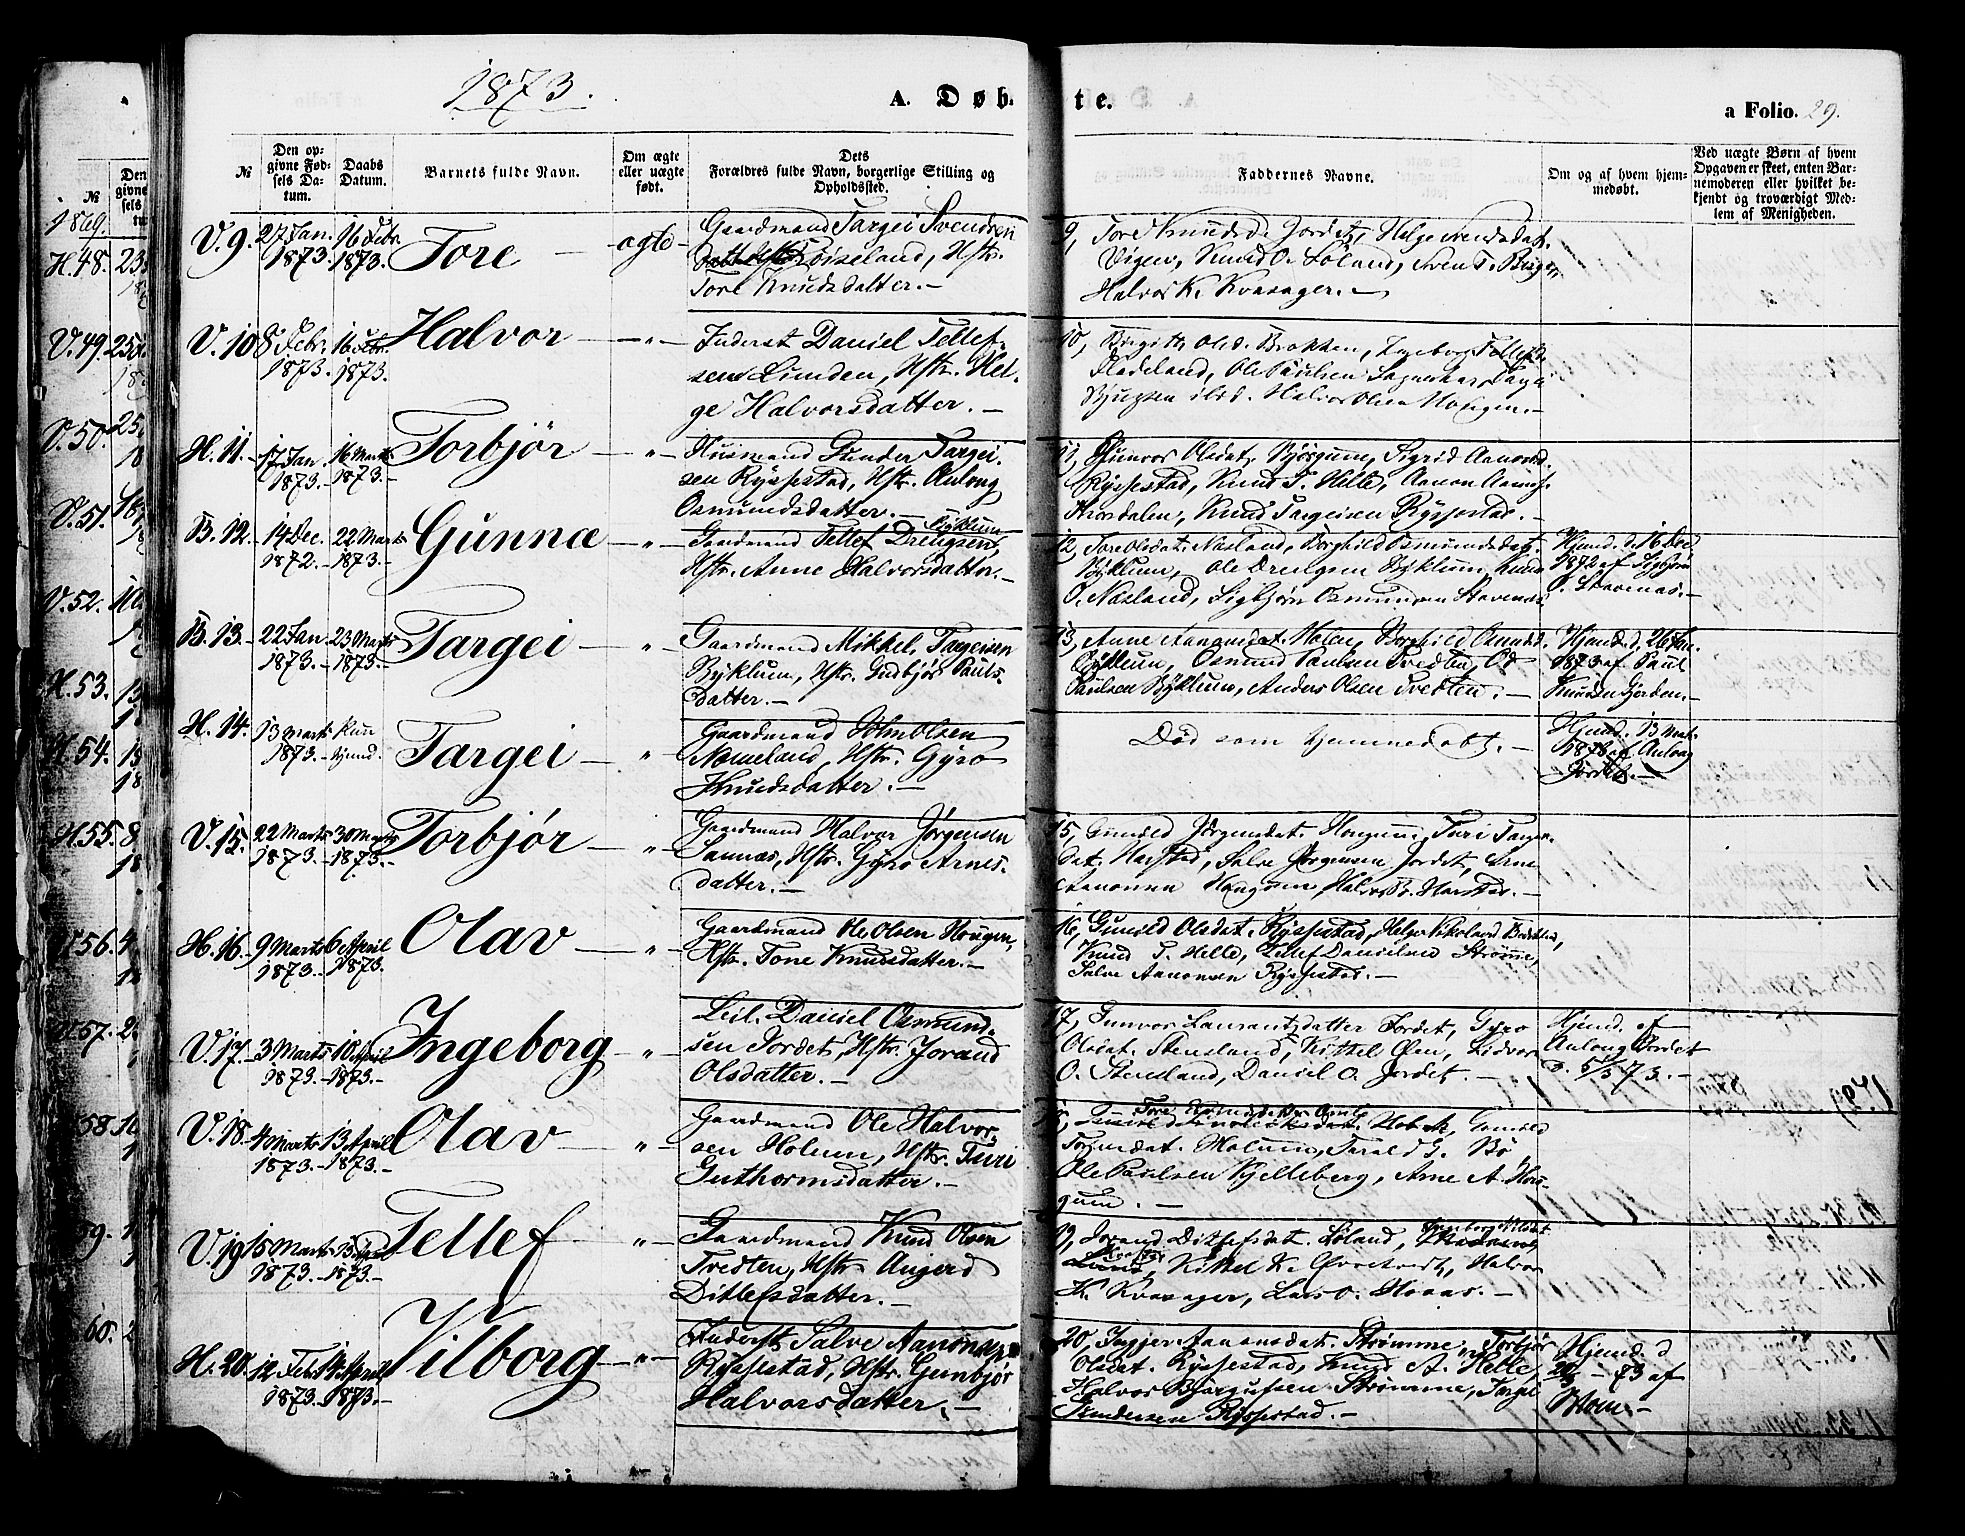 1873.
A. Døb-
te.
a Folio. 29.
№
Den op-
givne Fød-
sels Da-
tum.
Daabs
Datum.
Barnets fulde Navn.
Om ægte
eller uægte
født.
Dets
Forældres fulde Navn, borgerlige Stilling og
Opholdssted.
Faddernes Navne.
Om og af hvem hjem-
medøbt.
Ved uægte Børn af hvem
Opgaven er skeet, enten Bar-
nemoderen eller hvilket be-
kjendt og troværdigt Med-
lem af Menigheden.
V. 9. 27 Jan. 1873. 16 Febr. 1873. Tore – ægte – Gaardmand Targei Svendsen
Røiseland, Hstr.
Tore Knudsdatter. –
9, Tore Knudsd. Jordet, Helge Svendsdat.
Vigen, Knud O. Løland, Sven T.
Halvor K. Kvasager. –
V. 10 8 Febr. 1873. 16 Febr. 1873. Halvor – „ – Inderst Daniel Tellef-
sen Lunden, Hstr. Hel-
ge Halvorsdatter. –
10, Birgith Olsd. Brokken, Ingeborg Tellefsd.
Ole Paulsen
Halvor Olsen Hougen. –
H. 11. 17 Jan. 1873. 16 Marts 1873. Torbjør – „ – Husmand Gunder Targei-
sen Rysstad, Hstr. Aulong
Osmundsdatter. –
11, Gunvor Olsdat. Bjørgum, Sigrid Aanonsd.
Rysstad, Knud T. Helle, Aanon
Knud Targeisen Rysstad. –
B. 12. 14 Dec. 1872. 22 Marts 1873. Gunnæ – „ – Gaardmand Tellef Drengsen Byklum,
Hstr. Anne Halvorsdatter. –
12, Tore Olsdat. Næsland, Borghild Osmundsdat.
Byklum, Ole Drengsen Byklum, Knud
O. Næsland, Sigbjørn Osmundsen Stavenæs.
Hjemd. d. 16 Dec
1872 af Sigbjørn
O. Stavenæs. –
B. 13. 22 Jan. 1873. 23 Marts 1873. Targei – „ – Gaardmand Mikkel Targeisen
Byklum, Hstr. Gudbjør Pauls-
datter. –
13, Anne Aanonsdat. Holen, Borghild Osmundsd.
Byklum, Osmund Paulsen Tvedten, Od
Paulsen Byklum, Anders Olsen Tvedten. –
Hjemd. d. 26 Jan.
1873 af Paul
Knudsen Gjerden. –
H. 14. 13 Marts 1873. kun hjemd. Targei – „ Gaardmand John Olsen
Nomeland, Hstr. Gyro
Knudsdatter. –
Død som hjemmedøbt. –
Hjemd. 13 Mart.
1873 af Aulong
Jordet. –
V. 15. 22 Marts 1873. 30 Marts 1873. Torbjør – „ – Gaardmand Halvor Jørgensen
Sannæs, Hstr. Gyro Arnes-
datter. –
15, Gunild Jørgensdat. Hougum, Turi Targei-
dat. Harstad, Salve Jørgensen Jordet, Arne
Aanonsen Hougum, Halvor B. Harstad. –
H. 16. 9 Marts 1873. 6 April 1873. Olav – „ – Gaardmand Ole Olsen Hougen,
Hstr. Tone Knudsdatter. –
16, Gunild Olsdat. Rysstad, Helge Nikolaisd. Brokken,
Knud T. Helle, Tellef Danielsen Strømme,
Salve Aanonsen Rysstad. –
V. 17. 3 Marts 1873. 10 April 1873. Ingeborg – „ – Leil. Daniel Osmund-
sen Jordet, Hstr. Jorand
Olsdatter. –
17, Gunvor Laurantsdatter Jordet, Gyro
Olsdat. Stensland, Kittel Olsen, Lidvor
O. Stensland, Daniel O. Jordet. –
Hjemd. af
Aulong Jordet
d. 5/3 73. –
V. 18. 4 Marts 1873. 13 April 1873. Olav – „ – Gaardmand Ole Halvor-
sen Holum, Hstr. Turi
Guthormsdatter. –
18, Gunild
Holum, Tarald G. Bø
Ole Paulsen Kjelleberg, Arne A. Hou-
gum. –
V. 19 15 Marts 1873. 13 1873. Tellef – „ – Gaardmand Knud Olsen
Tvedten, Hstr. Angerd
Ditlefsdatter. –
19, Jorand Ditlefsdat. Løland,
Kittel K. Halvor
K. Kvasager, Lars O. Homas. –
H. 20. 12 Febr. 1873. 14 April 1873. Vilborg – „ – Inderst Salve Aanonsen
Rysstad, Hstr. Gunbjør
Halvorsdatter. –
20, Ingjer Aanonsdat. Strømme, Torbjør
Olsdat. Rysstad, Knud A. Helle,
Halvor Bjørgufsen Strømme, Targei
Gundersen Rysstad. –
Hjemd. d
– 73 af
Mom. –
№
Den
givne
sels
tu
1869.
H. 48.
V. 49.
V. 50.
V. 51.
V. 52.
H. 53.
H. 54.
H. 55.
56.
57.
58.
59.
60.